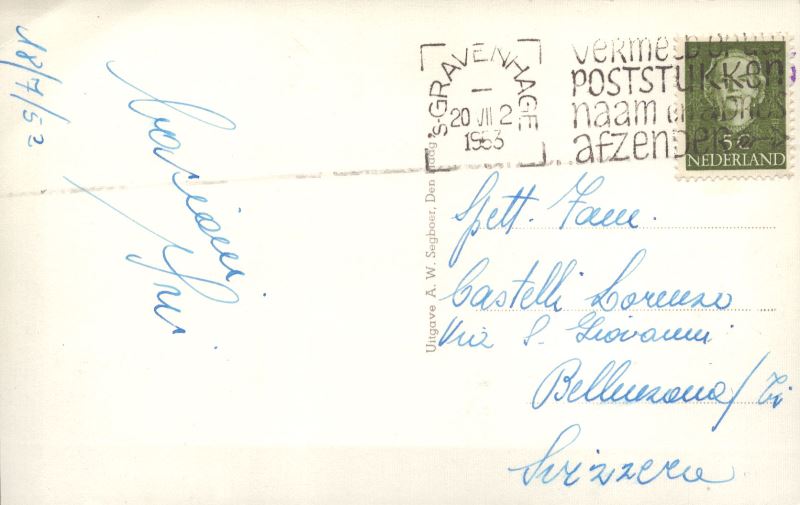 18/7/53
's-GRAVENHAGE
20 VII 2
1953
POSTSTUKKEN
naam en adres
afzender
5c
NEDERLAND
Uitgave A. W. Segboer, Den Haag
Spett. Fam.
Castelli Lorenzo
Via S. Giovanni
Bellinzona/Ti
Svizzera